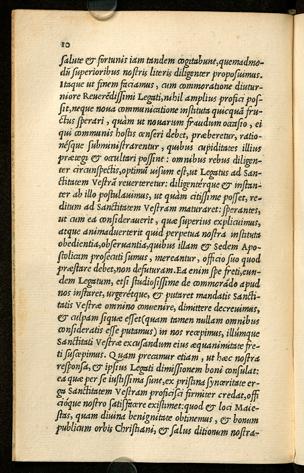 10
salute & fortunis iam tandem cogitabunt, quemadmo-
dū superioribus nostris literis diligenter proposuimus.
Itaque ut finem faciamus, cum commoratione diutur-
niore Reverēdissimi Legati, nihil amplius profici pos-
sit, neque noua communicatione instituta quicquā fru-
ctus sperari, quàm ut nouarum fraudum occasio, ei
qui communis hostis censeri debet, præberetur, ratio-
nésque subministrarentur, quibus cupiditates illius
prætegi & occultari possint: omnibus rebus diligen-
ter circunspectis, optimū uisum est, ut Legatus ad San-
ctitatem Vestrā reuerteretur: diligentérque & instan-
ter ab illo postulauimus, ut quàm citissime posset, re-
ditum ad Sanctitatem Vestram maturaret: sperantes,
ut cum ea considerauerit, quæ superius explicuimus,
atque animaduerterit quid perpetua nostra instituta
obedientia, obseruantia, quibus illam & Sedem Apo-
stolicam prosecuti sumus, mereantur, officio suo quod
præstare debet, non defuturam. Ea enim spe freti, eun-
dem Legatum, etsi studiosissime de commorādo apud
nos instaret, urgerétque, & putaret mandatis Sancti-
tatis Vestræ omnino conuenire, dimittere decreuimus,
& culpam sique esset (quam tamen nullam omnibus
consideratis esse putamus) in nos recepimus, illúmque
Sanctitati Vestræ excusandum eius æquanimitate fre-
ti suscepimus. Quam precamur etiam, ut hæc nostra
responsa, & ipsius Legati dimissionem boni consulat:
ea quæ per se iustissima sunt, ex pristina synceritate er-
ga Sanctitatem Vestram proficisci firmiter credat, offi
cióque nostro satisfacere existimet: quod & loci Maie-
stas, quam diuina benignitate obtinens, & bonum
publicum orbis Christiani, & salus ditionum nostra-